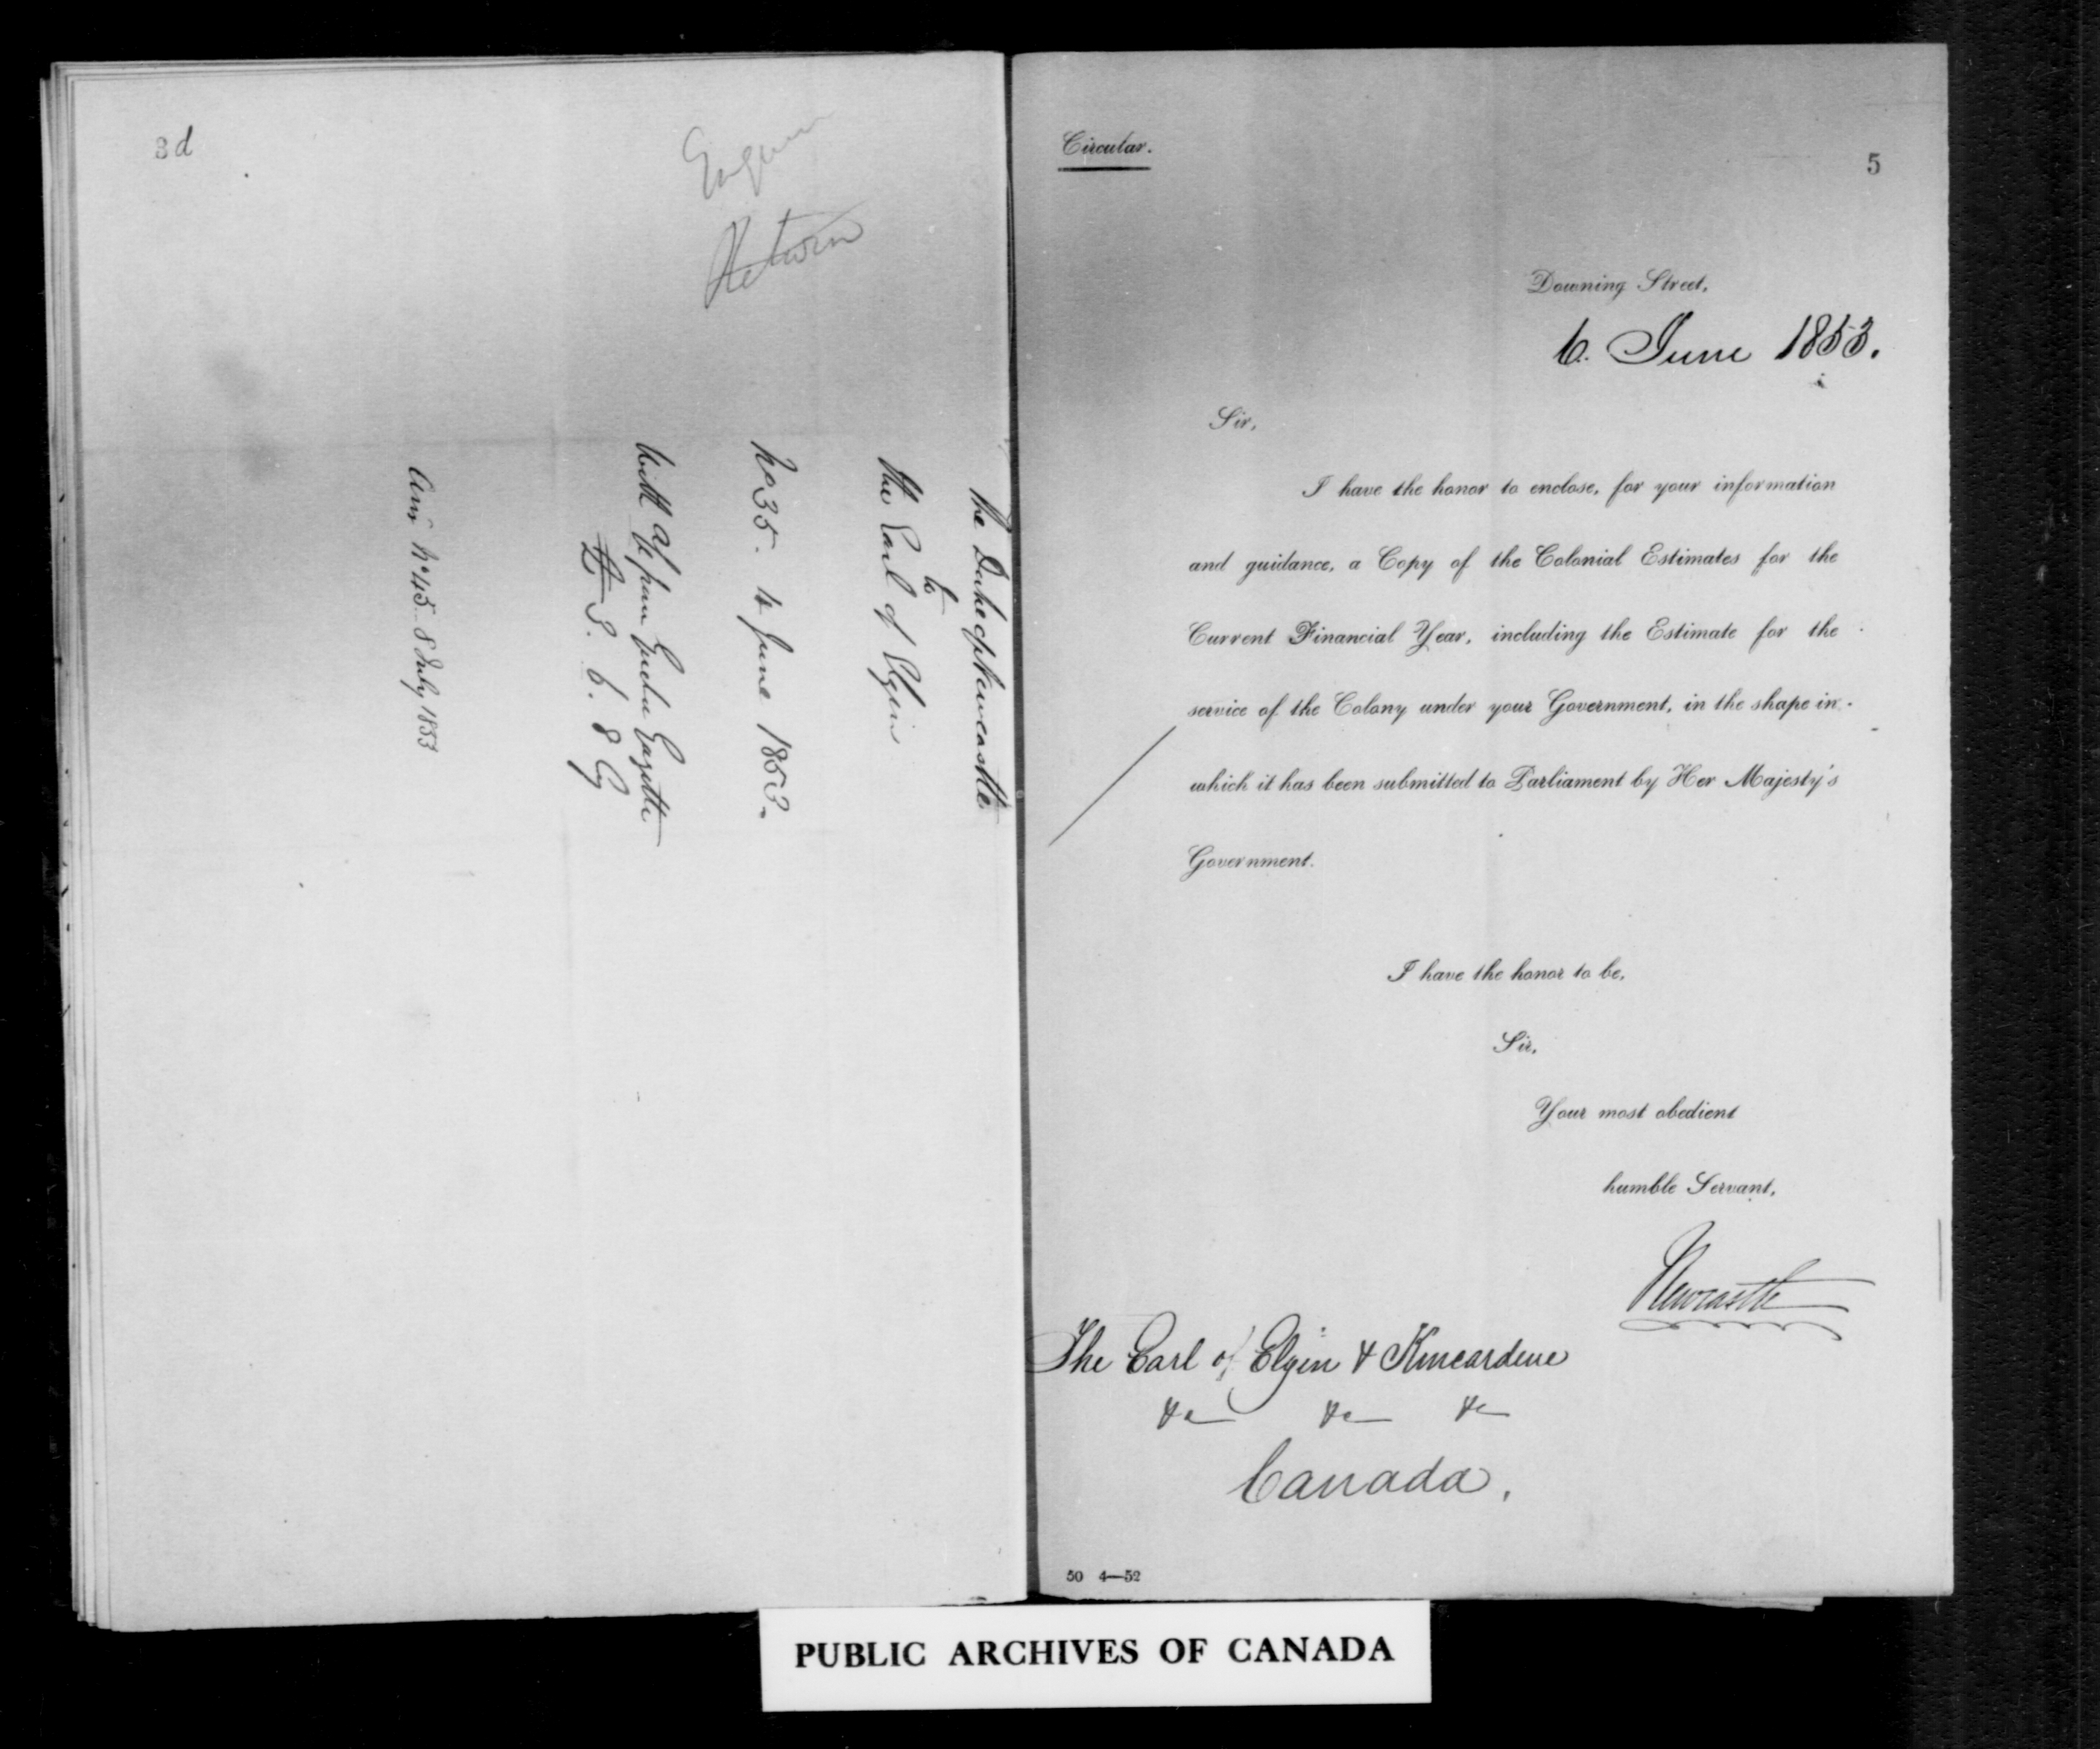 3d
Return
The Duke of Newcastle
to
The Earl of Elgin
No 35. 4 June 1853.
With a
Gazette
3. 6. 8 G
Ansr No 45 8 July 1853
Circular.
5
Downing Street,
6. June 1853.
Sir,
I have the honor to enclose, for your information
and guidance, a Copy of the Colonial Estimates for the
Current Financial Year, including the Estimate for the
service of the Colony under your Government, in the shape in
which it has been submitted to Parliament by Her Majesty's
Government.
I have the honor to be,
Sir,
Your most obedient
humble Servant,
Newcastle
The Earl of Elgin & Kincardine
&c &c &c
Canada.
50 4—52
PUBLIC ARCHIVES OF CANADA